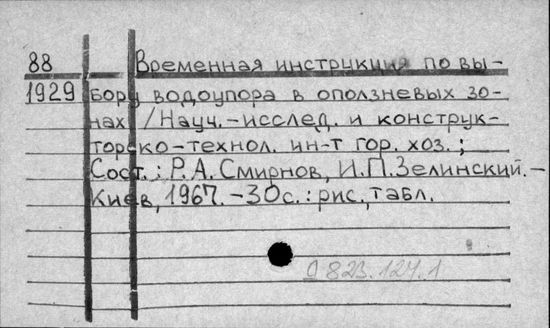 88 Временная инструкция по вы-
1929 бору водоупора в оползневых зо-
нах /Науч.-исслед. и конструк-
торско-технол. ин-т гор. хоз.;
Сост.: Р.А.Смирнов, И.П.Зелинский.-
Киев, 1967.-30с.: рис., табл.
О 823.127.1